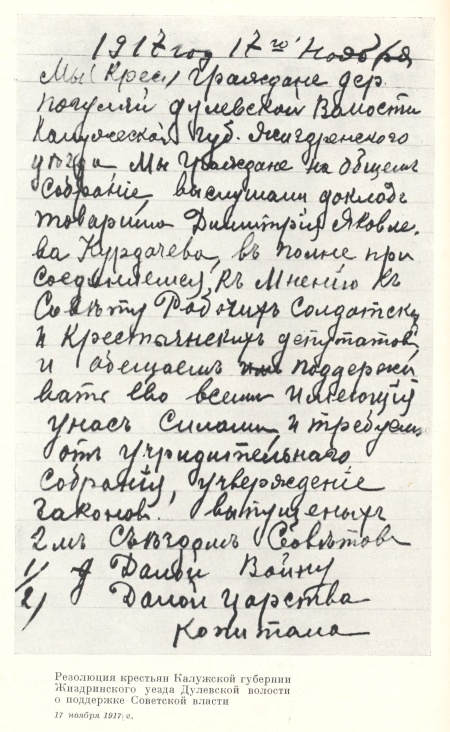 1917 год 17го Ноября
Мы Крес. граждане дер.
дулевской Валости
Калужеской губ. Жиздренского
уезда Мы граждане на общем
собрание выслушали докладъ
товарища Димитрия Яковле-
ва Курдачева, въ полне при
соединяемся, къ мнению къ
Совѣту Рабочихъ Солдатских
и Крестьянскихъ депутатов,
и обещаемъ поддержи
вать ево всеми имеющий
унасъ силами, и требуем
отъ учридительнаго
собрания, утверждение
законов. выпущеныхъ
2мъ Съездомъ Советов
1) Далой Войну
2) Далой царства
копитала
Резолюция крестьян Калужской губернии
Жиздринского уезда Дулевской волости
о поддержке Советской власти
17 ноября 1917 г.